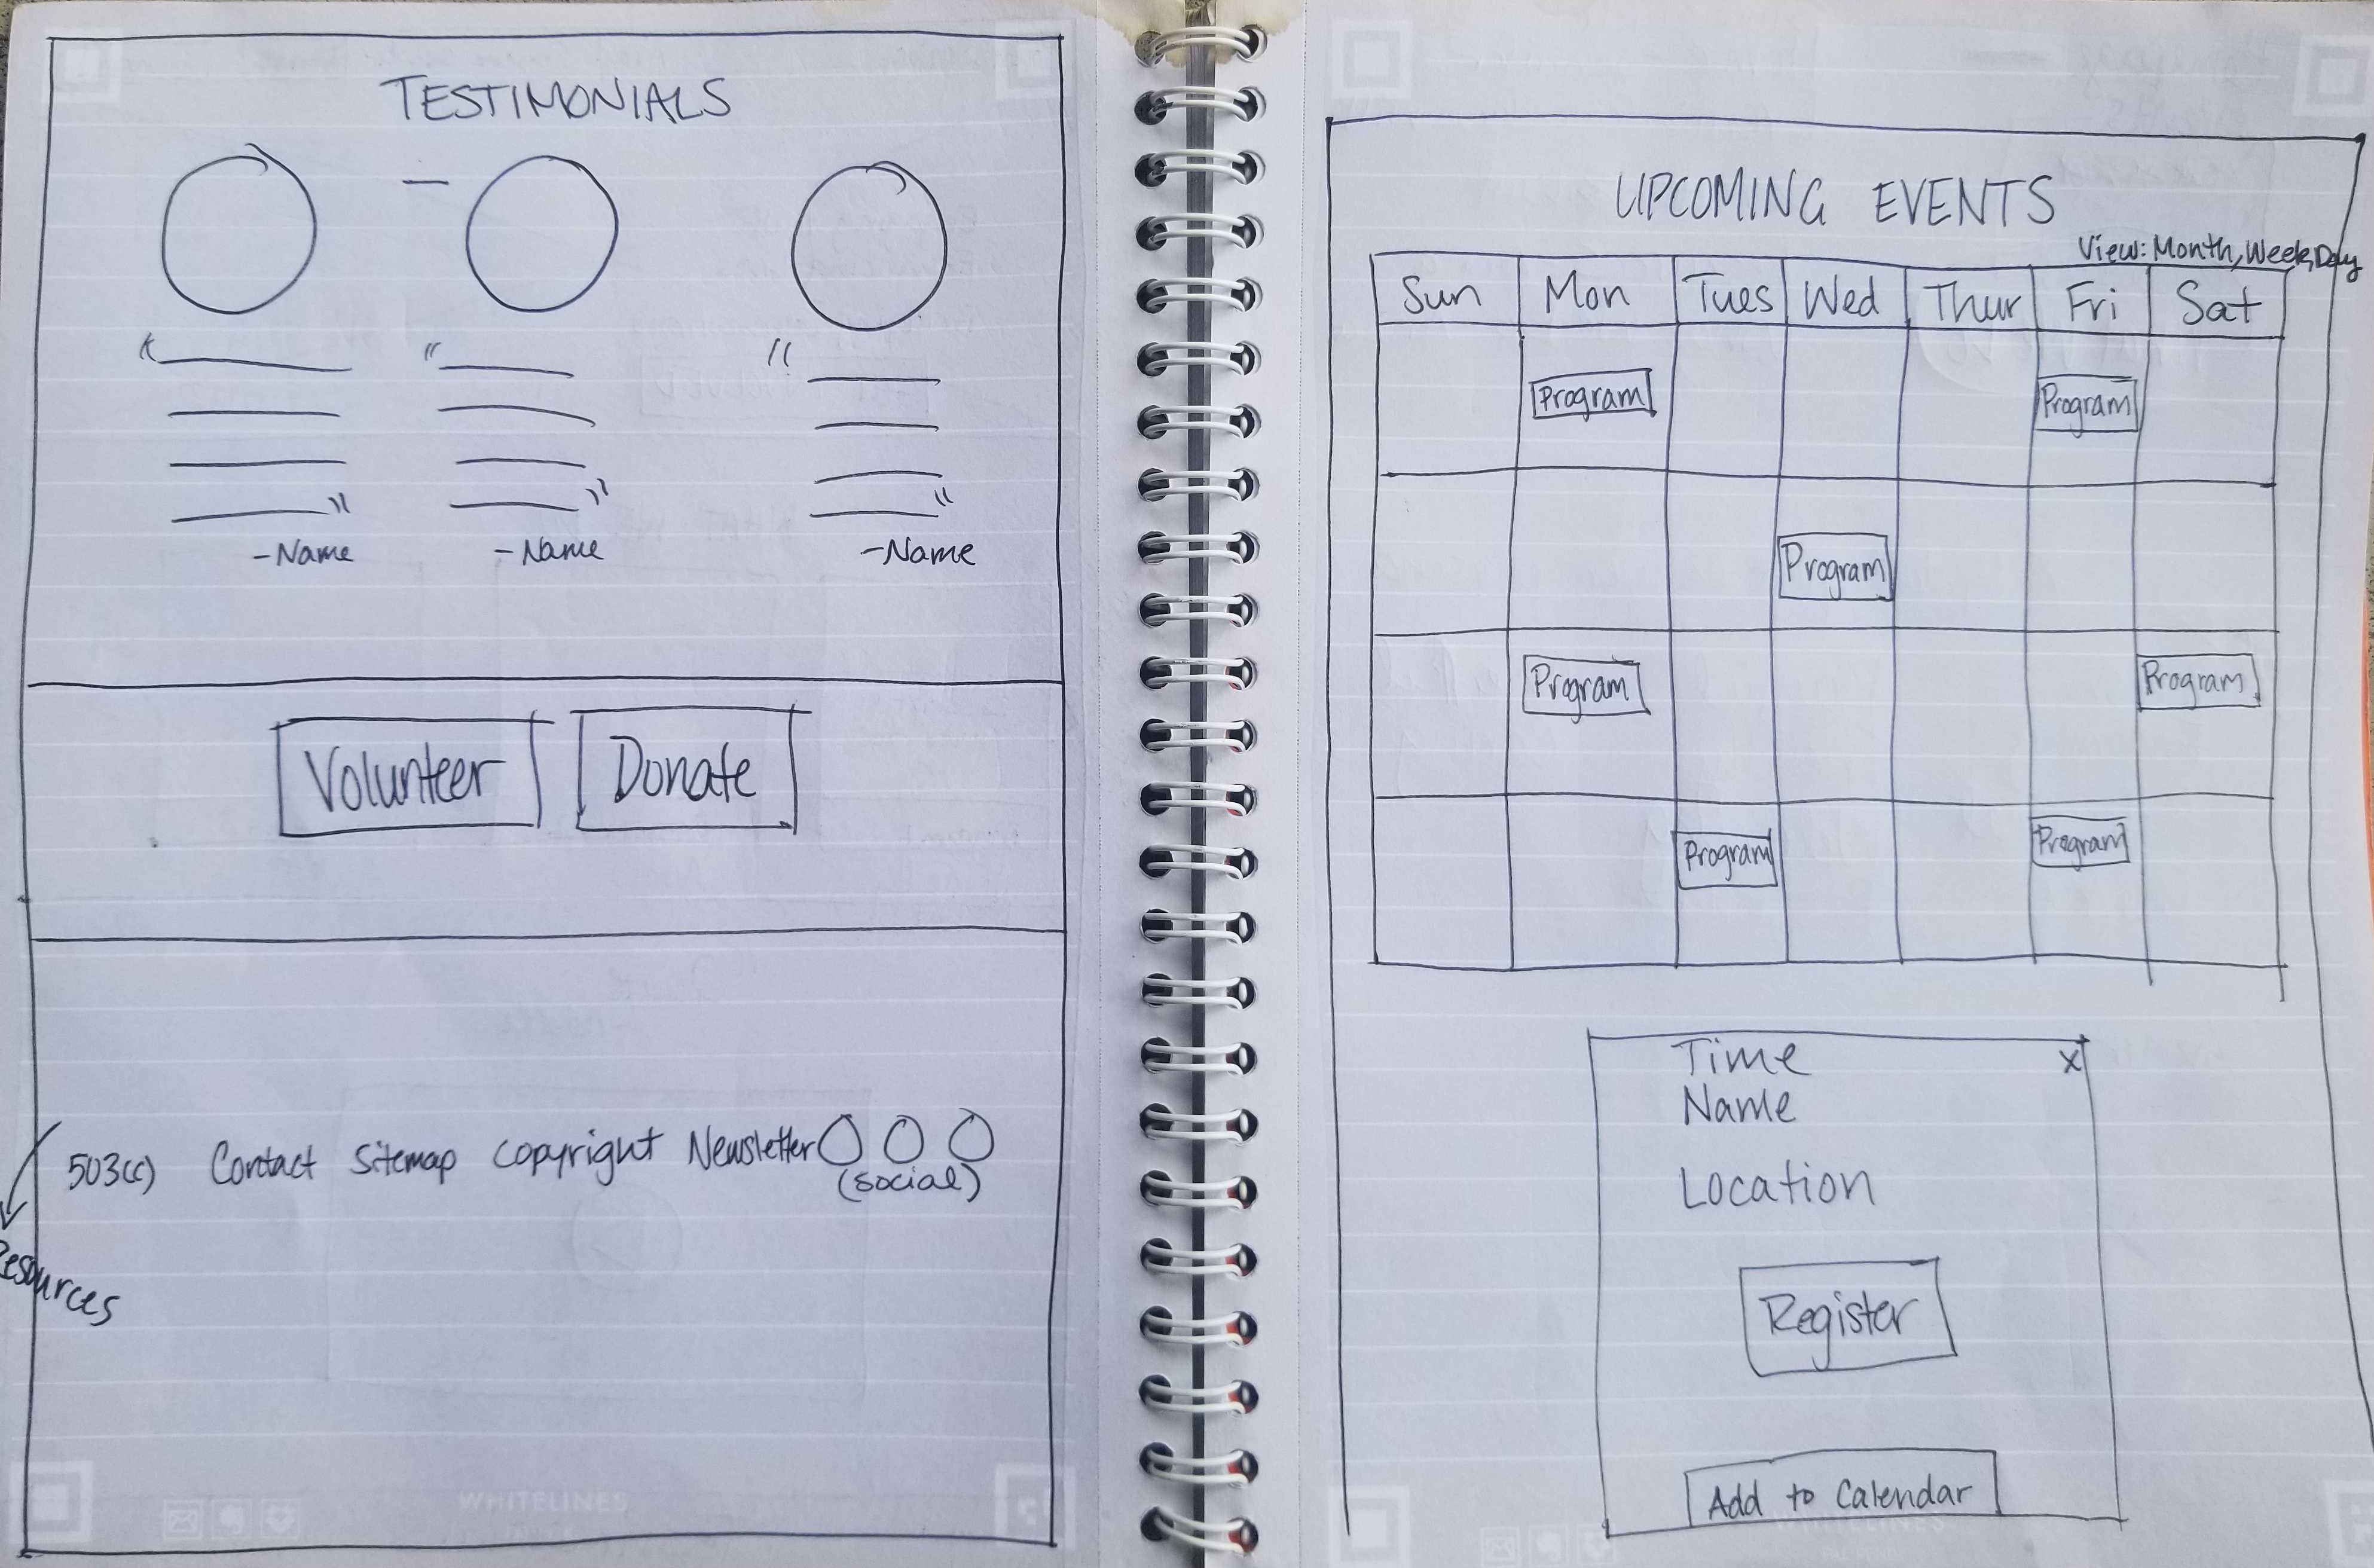 TESTIMONIALS
"
"
"
"
"
"
-Name
-Name
-Name
Volunteer
Donate
503(c) Contact Sitemap Copyright Newsletter
(social)
Resources
WHITELINES
UPCOMING EVENTS
View: Month, Week, Day
Sun Mon Tues Wed Thur Fri Sat
Program Program
Program
Program Program
Program Program
Time X
Name
Location
Register
Add to Calendar
WHITELINES